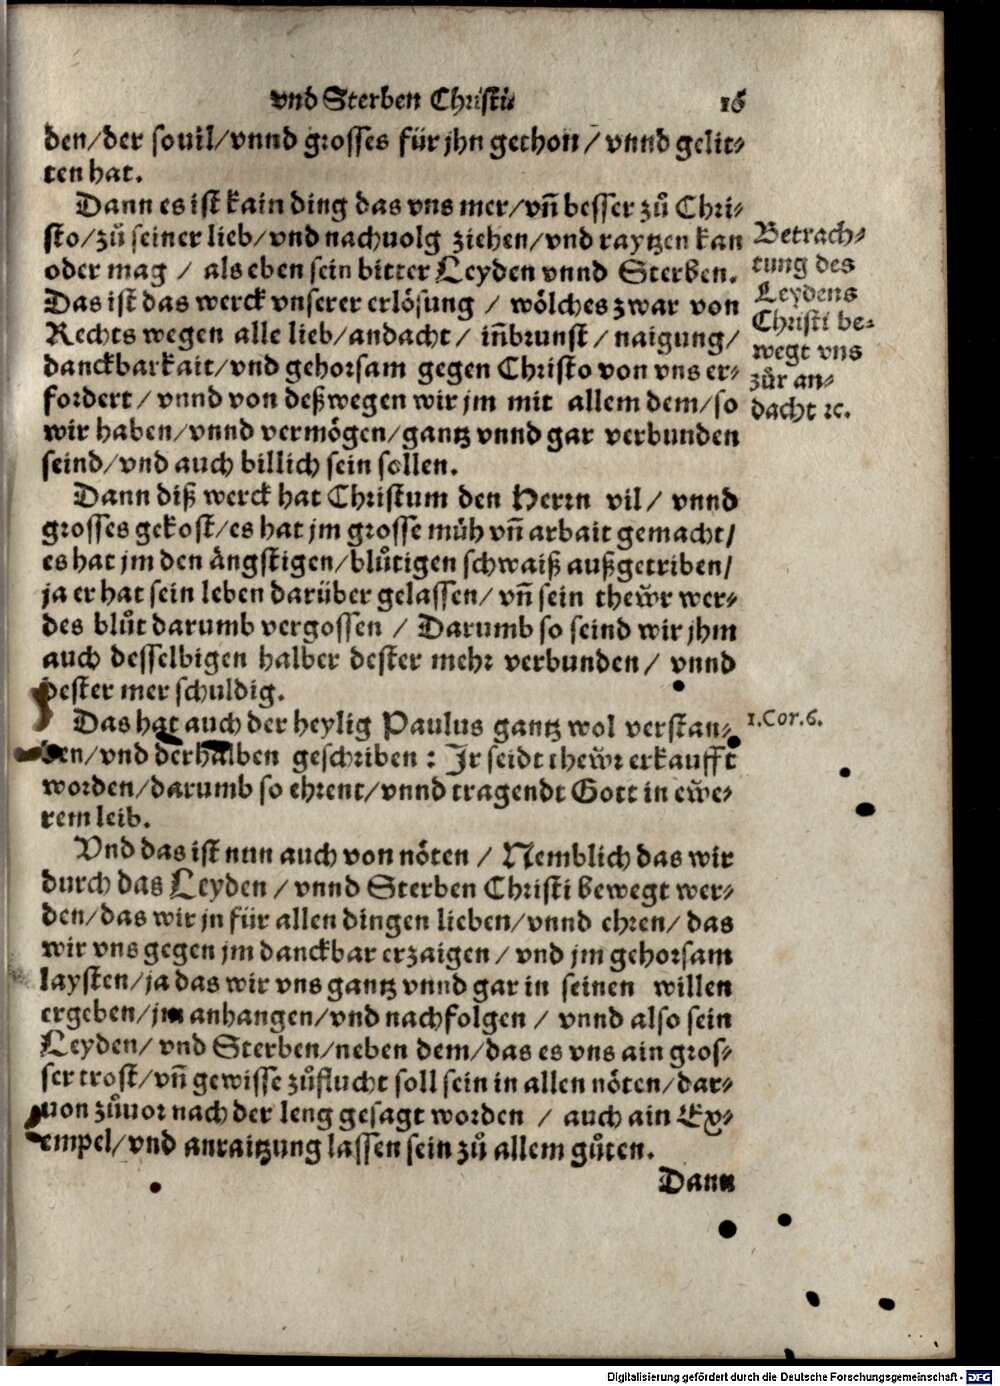 vnd Sterben Christi. 16
den/der souil/vnnd grosses für jhn gethon/vnnd gelit⸗
ten hat.
Dann es ist kain ding das vns mer/vñ besser zů Chri⸗
sto/zů seiner lieb/vnd nachuolg ziehen/vnd raytzen kan
oder mag / als eben sein bitter Leyden vnnd Sterben.
Das ist das werck vnserer erlösung / wölches zwar von
Rechts wegen alle lieb/andacht / iñbrunst / naigung/
danckbarkait/vnd gehorsam gegen Christo von vns er⸗
fordert / vnnd von deßwegen wir jm mit allem dem/so
wir haben/vnnd vermögen/gantz vnnd gar verbunden
seind/vnd auch billich sein sollen.
Betrach⸗
tung des
Leydens
Christi be⸗
wegt vns
zůr an⸗
dacht ꝛc.
Dann diß werck hat Christum den Herrn vil / vnnd
grosses gekost/es hat jm grosse müh vñ arbait gemacht/
es hat jm den ängstigen/blůtigen schwaiß außgetriben/
ja er hat sein leben darüber gelassen/ vñ sein thewr wer⸗
des blůt darumb vergossen / Darumb so seind wir jhm
auch desselbigen halber dester mehr verbunden/ vnnd
dester mer schuldig.
Das hat auch der heylig Paulus gantz wol verstan⸗
den/vnd derhalben geschriben : Ir seidt thewr erkaufft
worden/darumb so ehrent/vnnd tragendt Gott in ewe⸗
rem leib.
1.Cor.6.
Vnd das ist nun auch von nöten / Nemblich das wir
durch das Leyden / vnnd Sterben Christi bewegt wer⸗
den/das wir jn für allen dingen lieben/vnnd ehren/ das
wir vns gegen jm danckbar erzaigen / vnd jm gehorsam
laysten/ja das wir vns gantz vnnd gar in seinen willen
ergeben/jm anhangen/vnd nachfolgen / vnnd also sein
Leyden/ vnd Sterben/neben dem/das es vns ain gros⸗
ser trost/vñ gewisse zůflucht soll sein in allen nöten/dar⸗
uon zůuor nach der leng gesagt worden / auch ain Ex⸗
empel/vnd anraitzung lassen sein zů allem gůten.
Dann
Digitalisierung gefördert durch die Deutsche Forschungsgemeinschaft - DFG